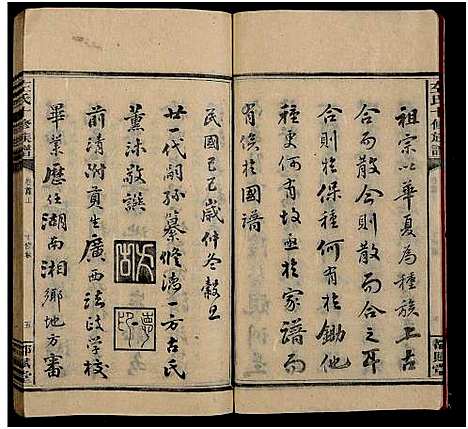 祖宗以華夏為種族上古
合而散今則散而合之耳
合則於保種何有於鋤他
種更何有故亟於家譜而
有俟於國譜
民國己巳歲仲冬穀旦
廿一代嗣孫纂修清一方古氏
薰沐敬譔
前清附貢生廣西法政學校
畢業歷任湖南湘鄉地方審